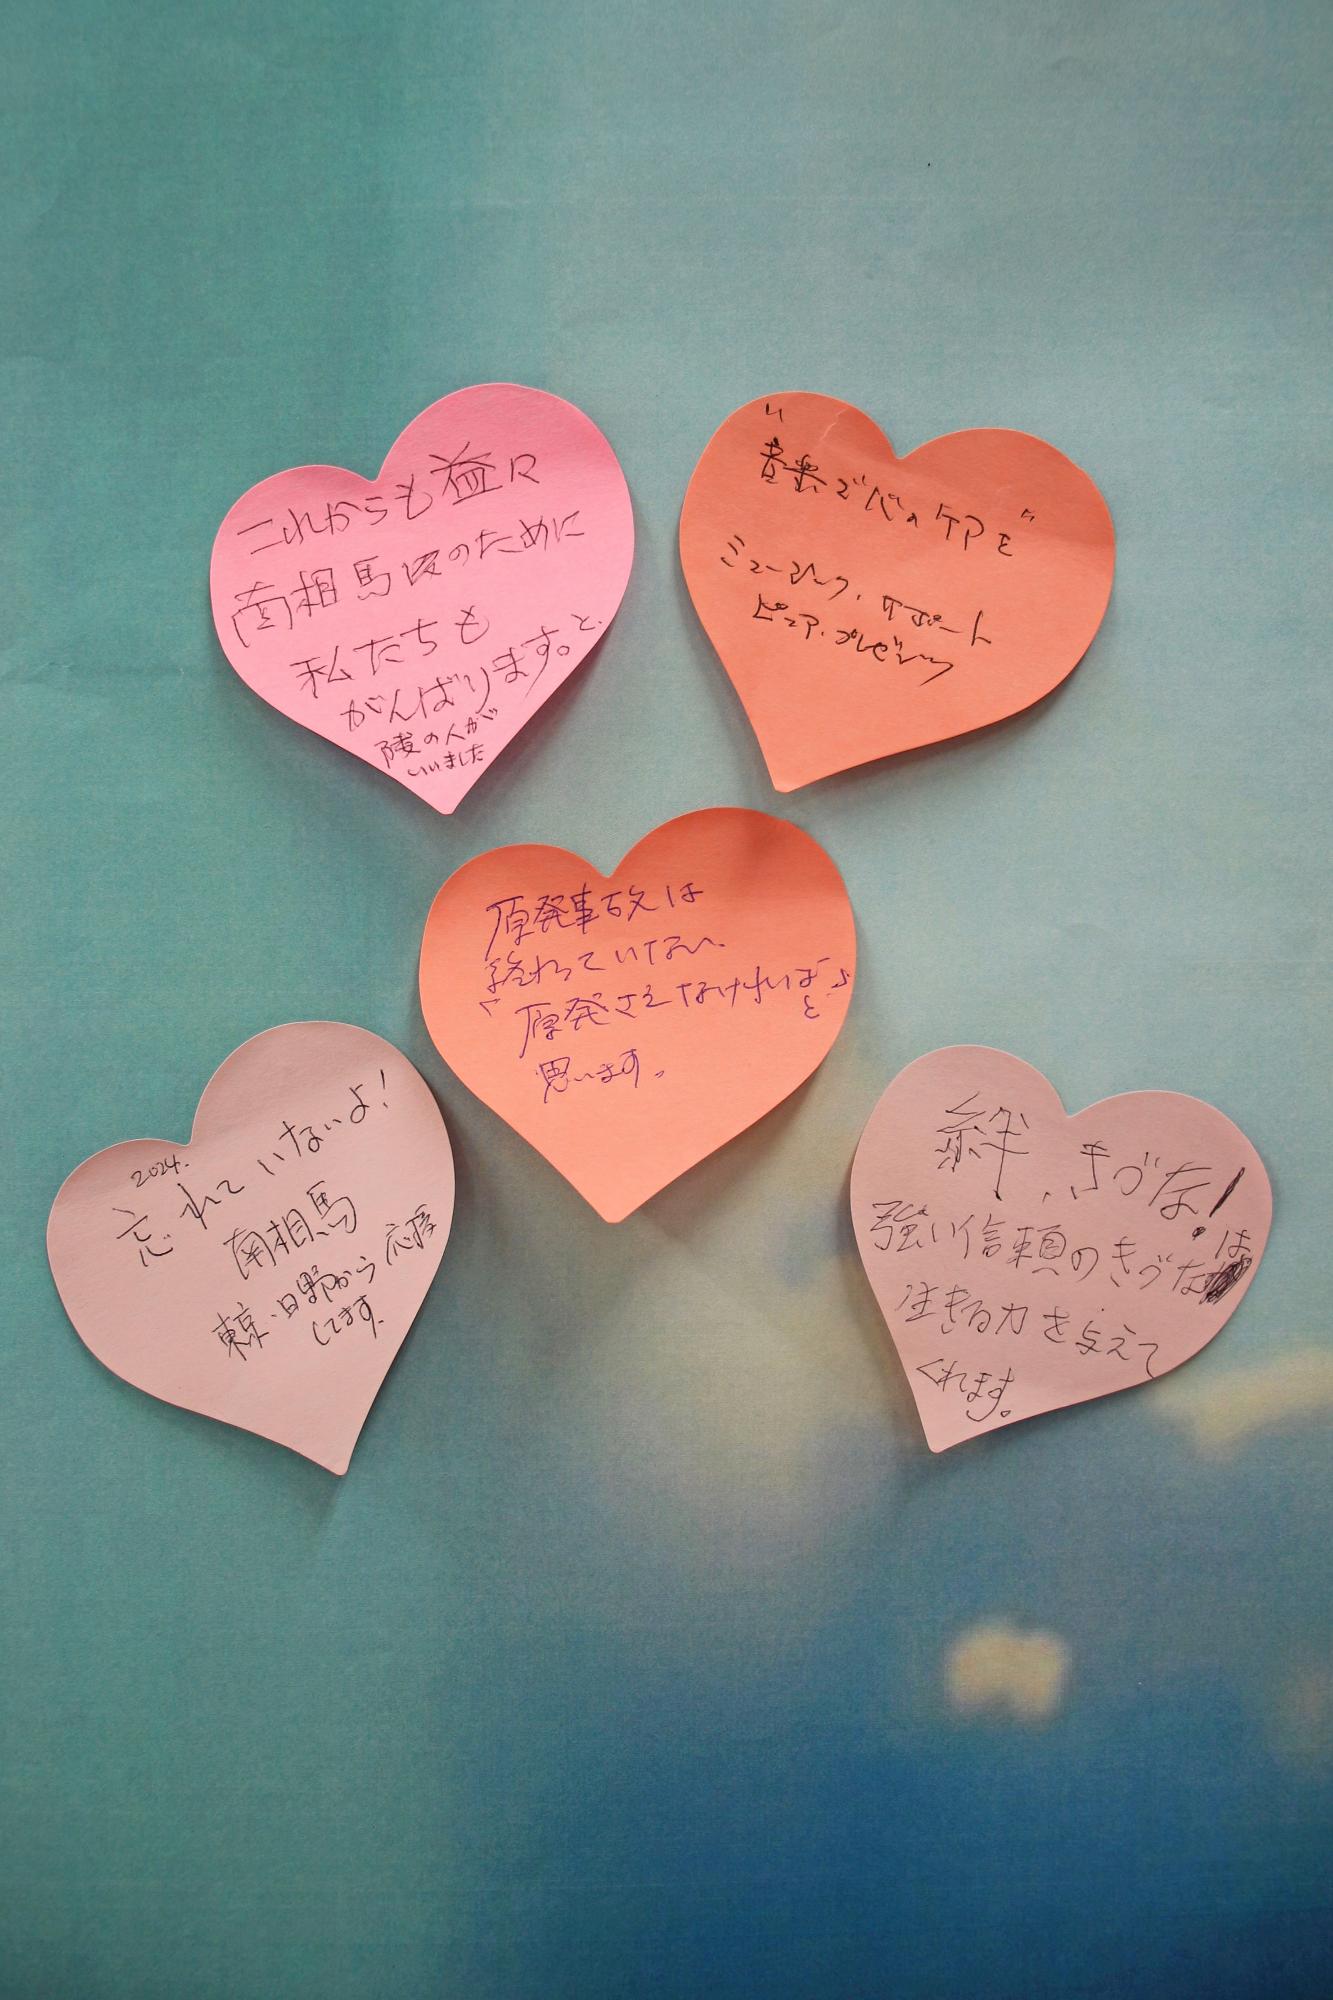 これからも益々
南相馬のために
私たちも
がんばります。と
の人が
いいました
"音楽で心のケアを"
ミュージック・サポート
ピュア・プレゼンツ
原発事故は
終わっていない、
「原発さえなければ」
と
思います。
2024.
忘れていないよ!
南相馬
東京・日野から応援
してます。
絆、きづな!
強い信頼のきづなは
生きる力を与えて
くれます。